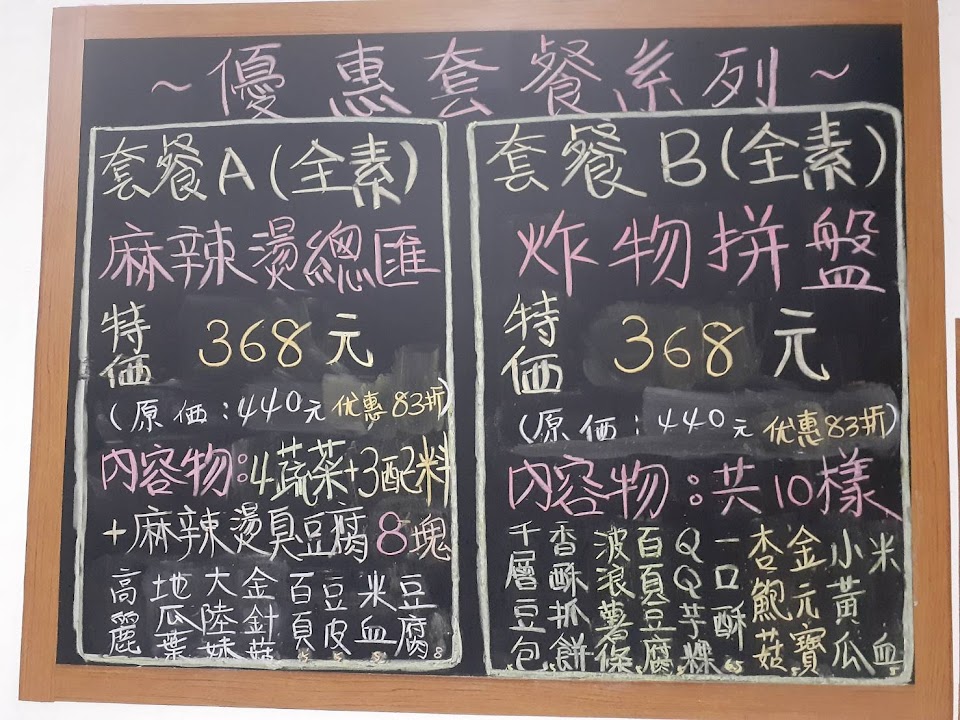 ~優惠套餐系列~
套餐A(全素)
麻辣燙總匯
特価 368元
(原価:440元优惠83折)
內容物:4蔬菜+3配2料
+麻辣燙臭豆腐8塊
高麗 地瓜葉 大陸妹 金針菇 百頁 豆皮 米血 豆腐
套餐B(全素)
炸物拼盤
特価 368元
(原価:440元优惠83折)
內容物:共10樣
千層豆包 香酥抓餅 波浪薯條 百頁豆腐 QQ芋粿 一口酥 杏鮑菇 金元寶 小黃瓜 米血